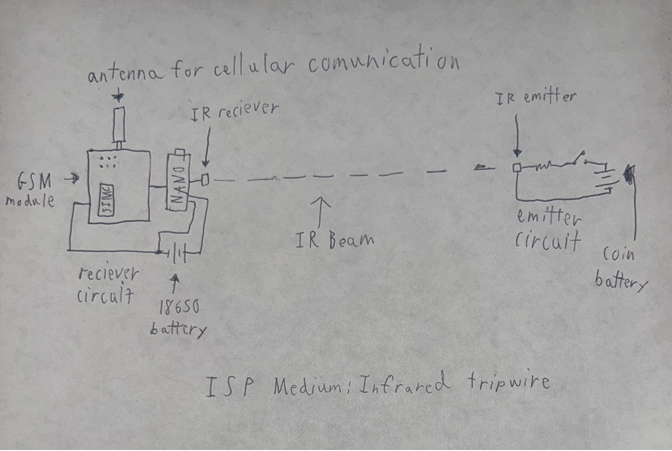 antenna for cellular comunication
IR reciever
IR emitter
GSM
module
SIMC
NANO
IR Beam
emitter
circuit
coin
battery
reciever
circuit
18650
battery
ISP Medium: Infrared tripwire